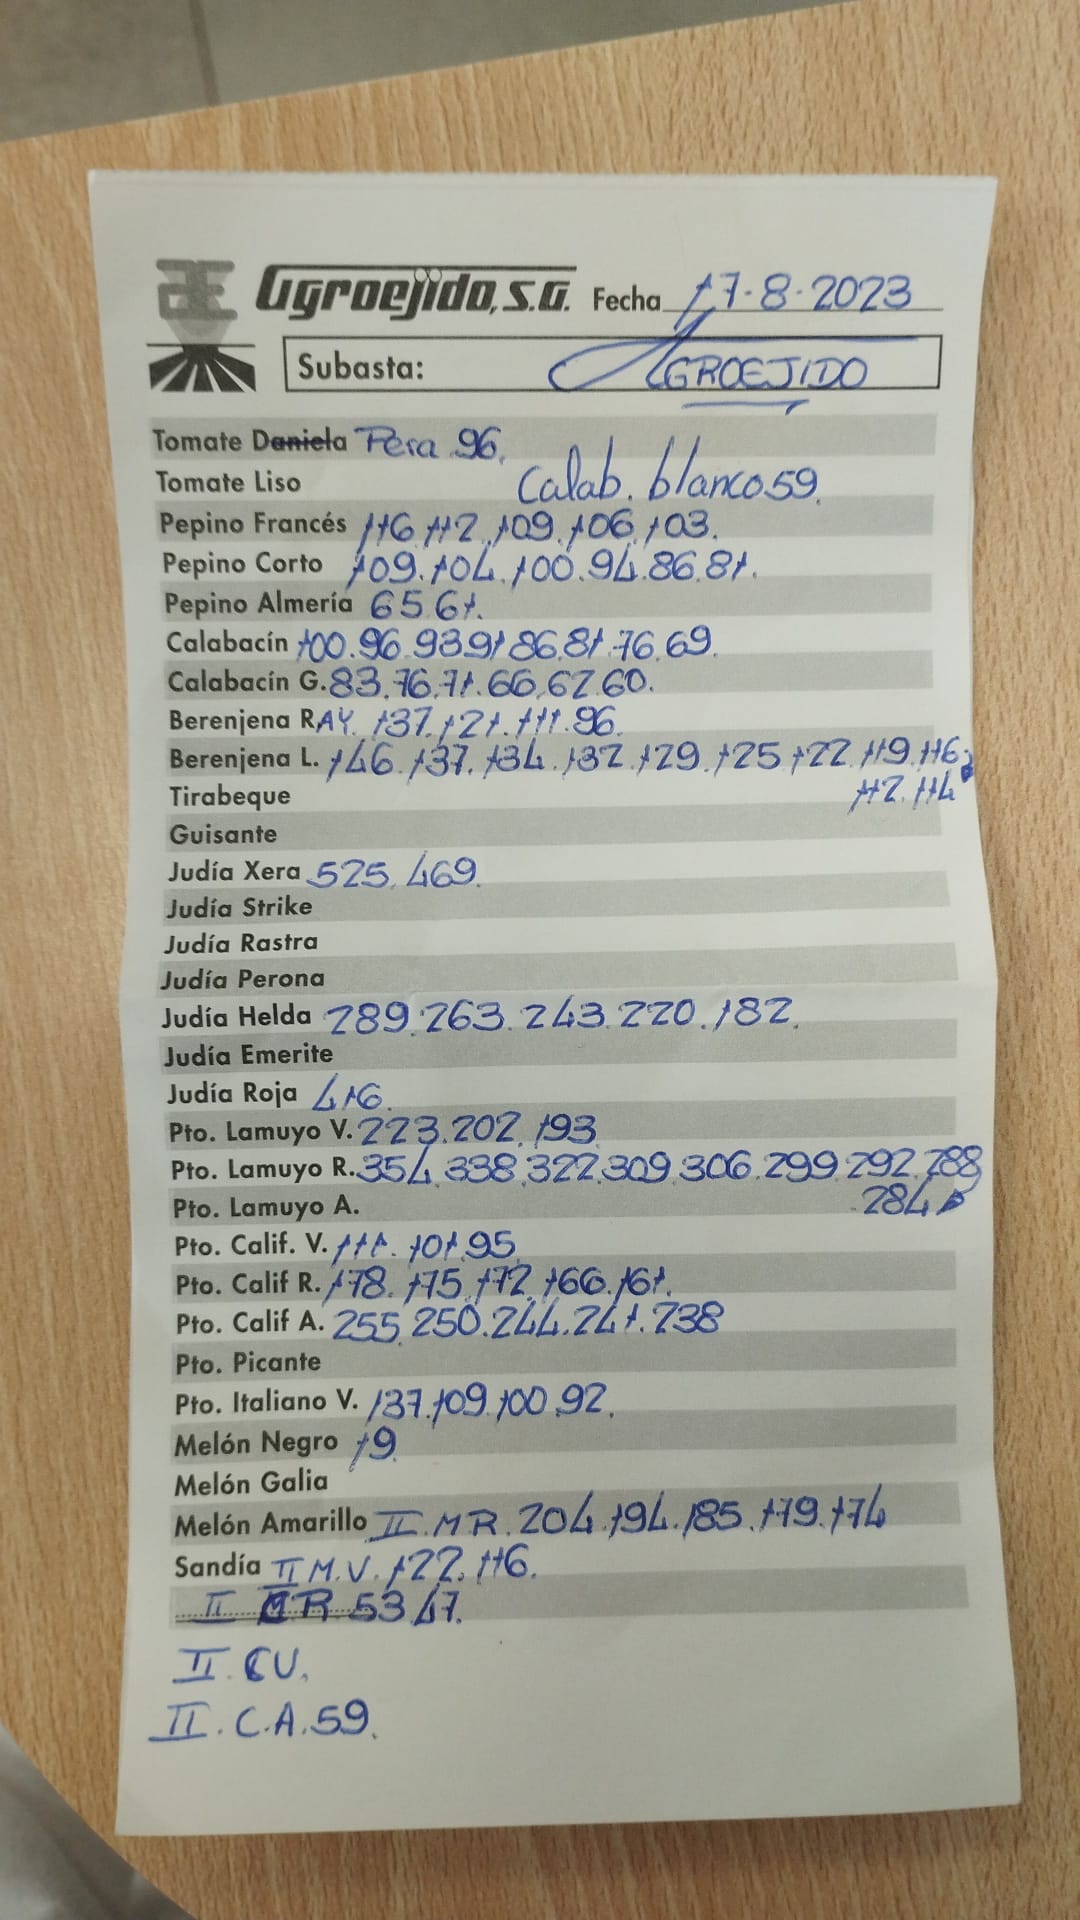 Agroejido, S.A. Fecha 17-8-2023
Subasta: AGROEJIDO
Tomate Daniela Pera 96.
Tomate Liso Calab. blanco 59.
Pepino Francés 116. 112. 109. 106. 103.
Pepino Corto 109. 104. 100. 94. 86. 81.
Pepino Almería 65 61.
Calabacín 100. 96. 93 91 86. 81. 76. 69.
Calabacín G. 83. 76. 71. 66. 62 60.
Berenjena RAY. 137. 121. 111. 96.
Berenjena L. 146. 137. 134. 132. 129. 125 122. 119. 116
Tirabeque 112. 114
Guisante
Judía Xera 525. 469.
Judía Strike
Judía Rastra
Judía Perona
Judía Helda 289. 263. 243. 220. 182.
Judía Emerite
Judía Roja 416.
Pto. Lamuyo V. 223. 202. 193
Pto. Lamuyo R. 354. 338. 322. 309. 306. 299. 292. 288
Pto. Lamuyo A. 284
Pto. Calif. V. 111. 101. 95
Pto. Calif R. 178. 175. 172. 166. 161.
Pto. Calif A. 255. 250. 244. 241. 238
Pto. Picante
Pto. Italiano V. 137. 109. 100. 92.
Melón Negro 19.
Melón Galia
Melón Amarillo II. M R. 204. 194. 185. 179. 174
Sandía II M.V. 122. 116.
II R 53 47.
II. CU.
II. C.A. 59.